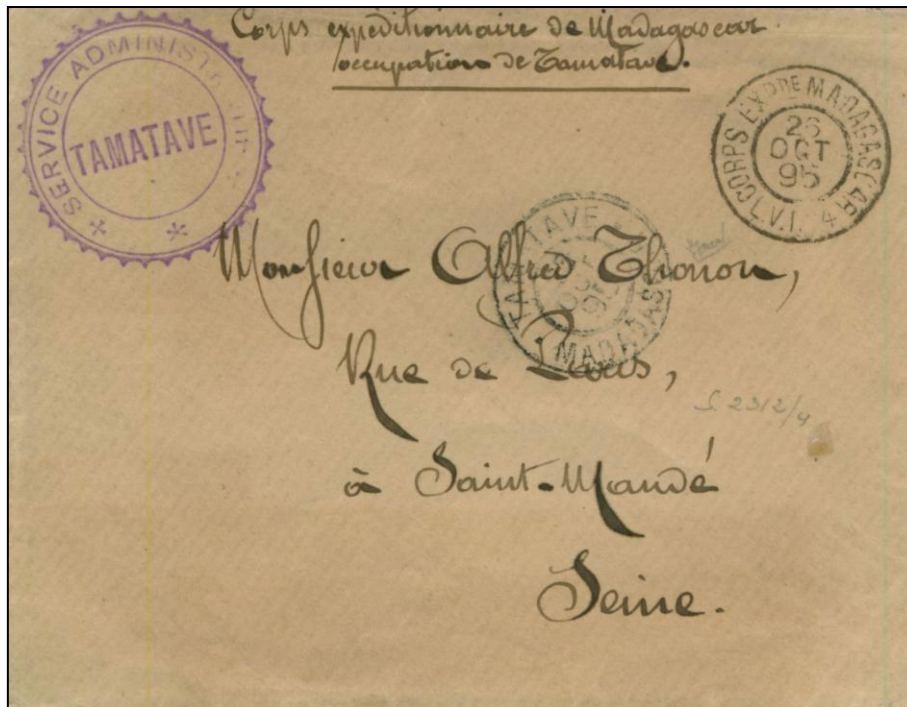 Corps expéditionnaire de Madagascar.
occupation de Tamatave.
SERVICE ADMINISTRATIF
TAMATAVE
CORPS EXPRE MADAGASCAR
26
OCT
95
TAMATAVE
MADAGASCAR
Monsieur Alfred Thonon,
Rue de Paris,
à Saint-Mandé
Seine.